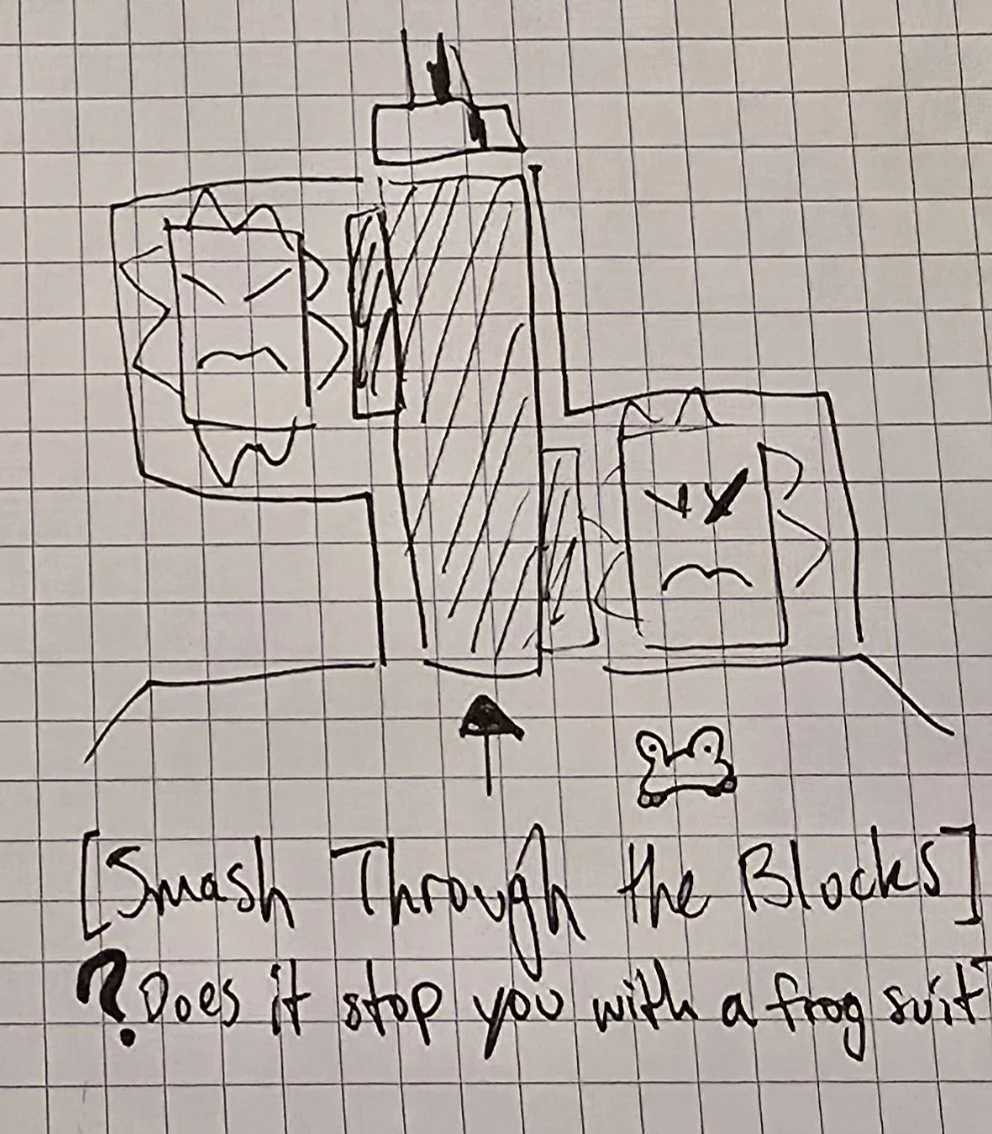 [Smash Through the Blocks]
? Does it stop you with a frog suit?